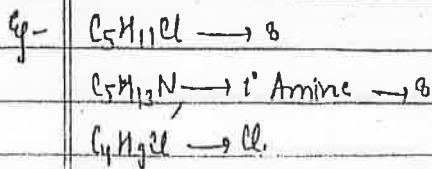 eg- C5H11Cl → 8
C5H13N → 1° Amine → 8
C4H9Cl → Cl.